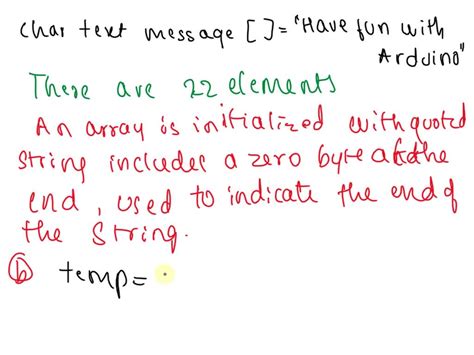 Char text message []= "Have fun with
Arduino"
There are 22 elements
An array is initialized with quoted
string includes a zero byte at the
end, used to indicate the end of
the string.
(b) temp=